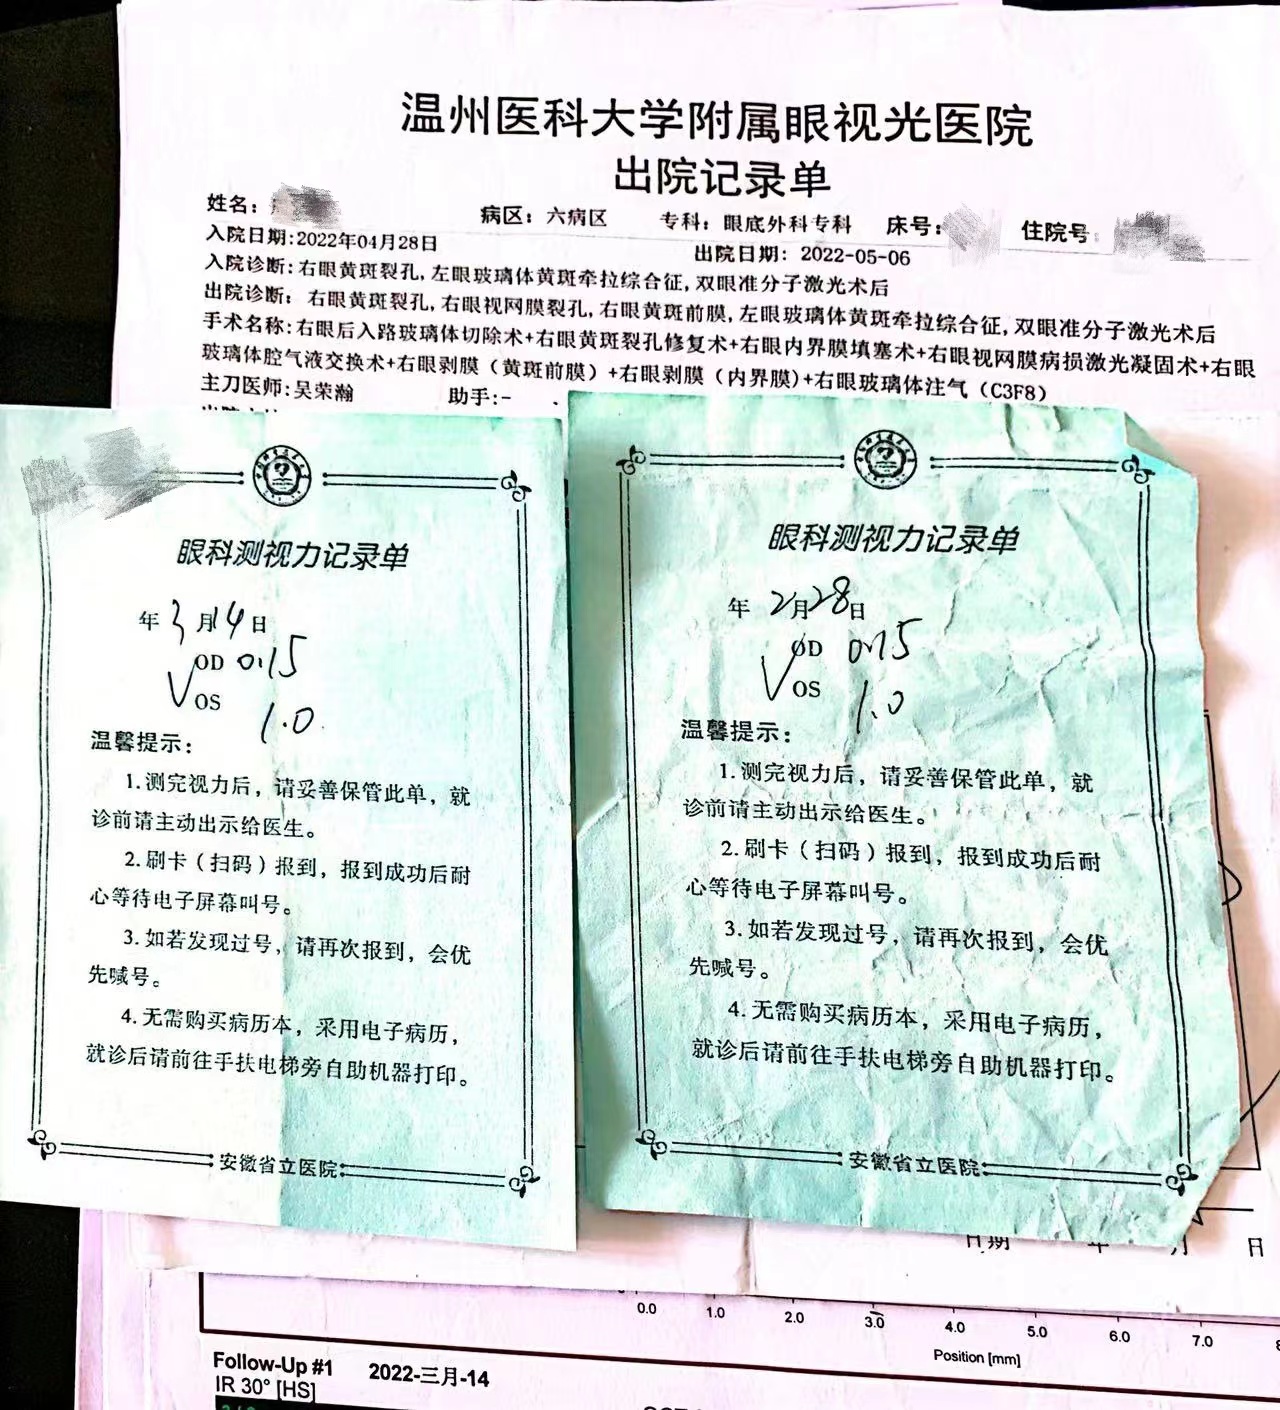 温州医科大学附属眼视光医院
出院记录单
姓名: 病区: 六病区 专科: 眼底外科专科 床号: 住院号:
入院日期:2022年04月28日 出院日期: 2022-05-06
入院诊断:右眼黄斑裂孔,左眼玻璃体黄斑牵拉综合征,双眼准分子激光术后
出院诊断: 右眼黄斑裂孔,右眼视网膜裂孔,右眼黄斑前膜,左眼玻璃体黄斑牵拉综合征,双眼准分子激光术后
手术名称:右眼后入路玻璃体切除术+右眼黄斑裂孔修复术+右眼内界膜填塞术+右眼视网膜病损激光凝固术+右眼
玻璃体腔气液交换术+右眼剥膜(黄斑前膜)+右眼剥膜(内界膜)+右眼玻璃体注气(C3F8)
主刀医师:吴荣瀚 助手:-
眼科测视力记录单
年3月14日
OD 0.15
OS 1.0
温馨提示:
1.测完视力后,请妥善保管此单,就
诊前请主动出示给医生。
2.刷卡(扫码)报到,报到成功后耐
心等待电子屏幕叫号。
3.如若发现过号,请再次报到,会优
先喊号。
4.无需购买病历本,采用电子病历,
就诊后请前往手扶电梯旁自助机器打印。
安徽省立医院
眼科测视力记录单
年2月28日
OD 0.15
OS 1.0
温馨提示:
1.测完视力后,请妥善保管此单,就
诊前请主动出示给医生。
2.刷卡(扫码)报到,报到成功后耐
心等待电子屏幕叫号。
3.如若发现过号,请再次报到,会优
先喊号。
4.无需购买病历本,采用电子病历,
就诊后请前往手扶电梯旁自助机器打印。
安徽省立医院
日期 年 月 日
0.0 1.0 2.0 3.0 4.0 5.0 6.0 7.0
Position [mm]
Follow-Up #1 2022-三月-14
IR 30° [HS]